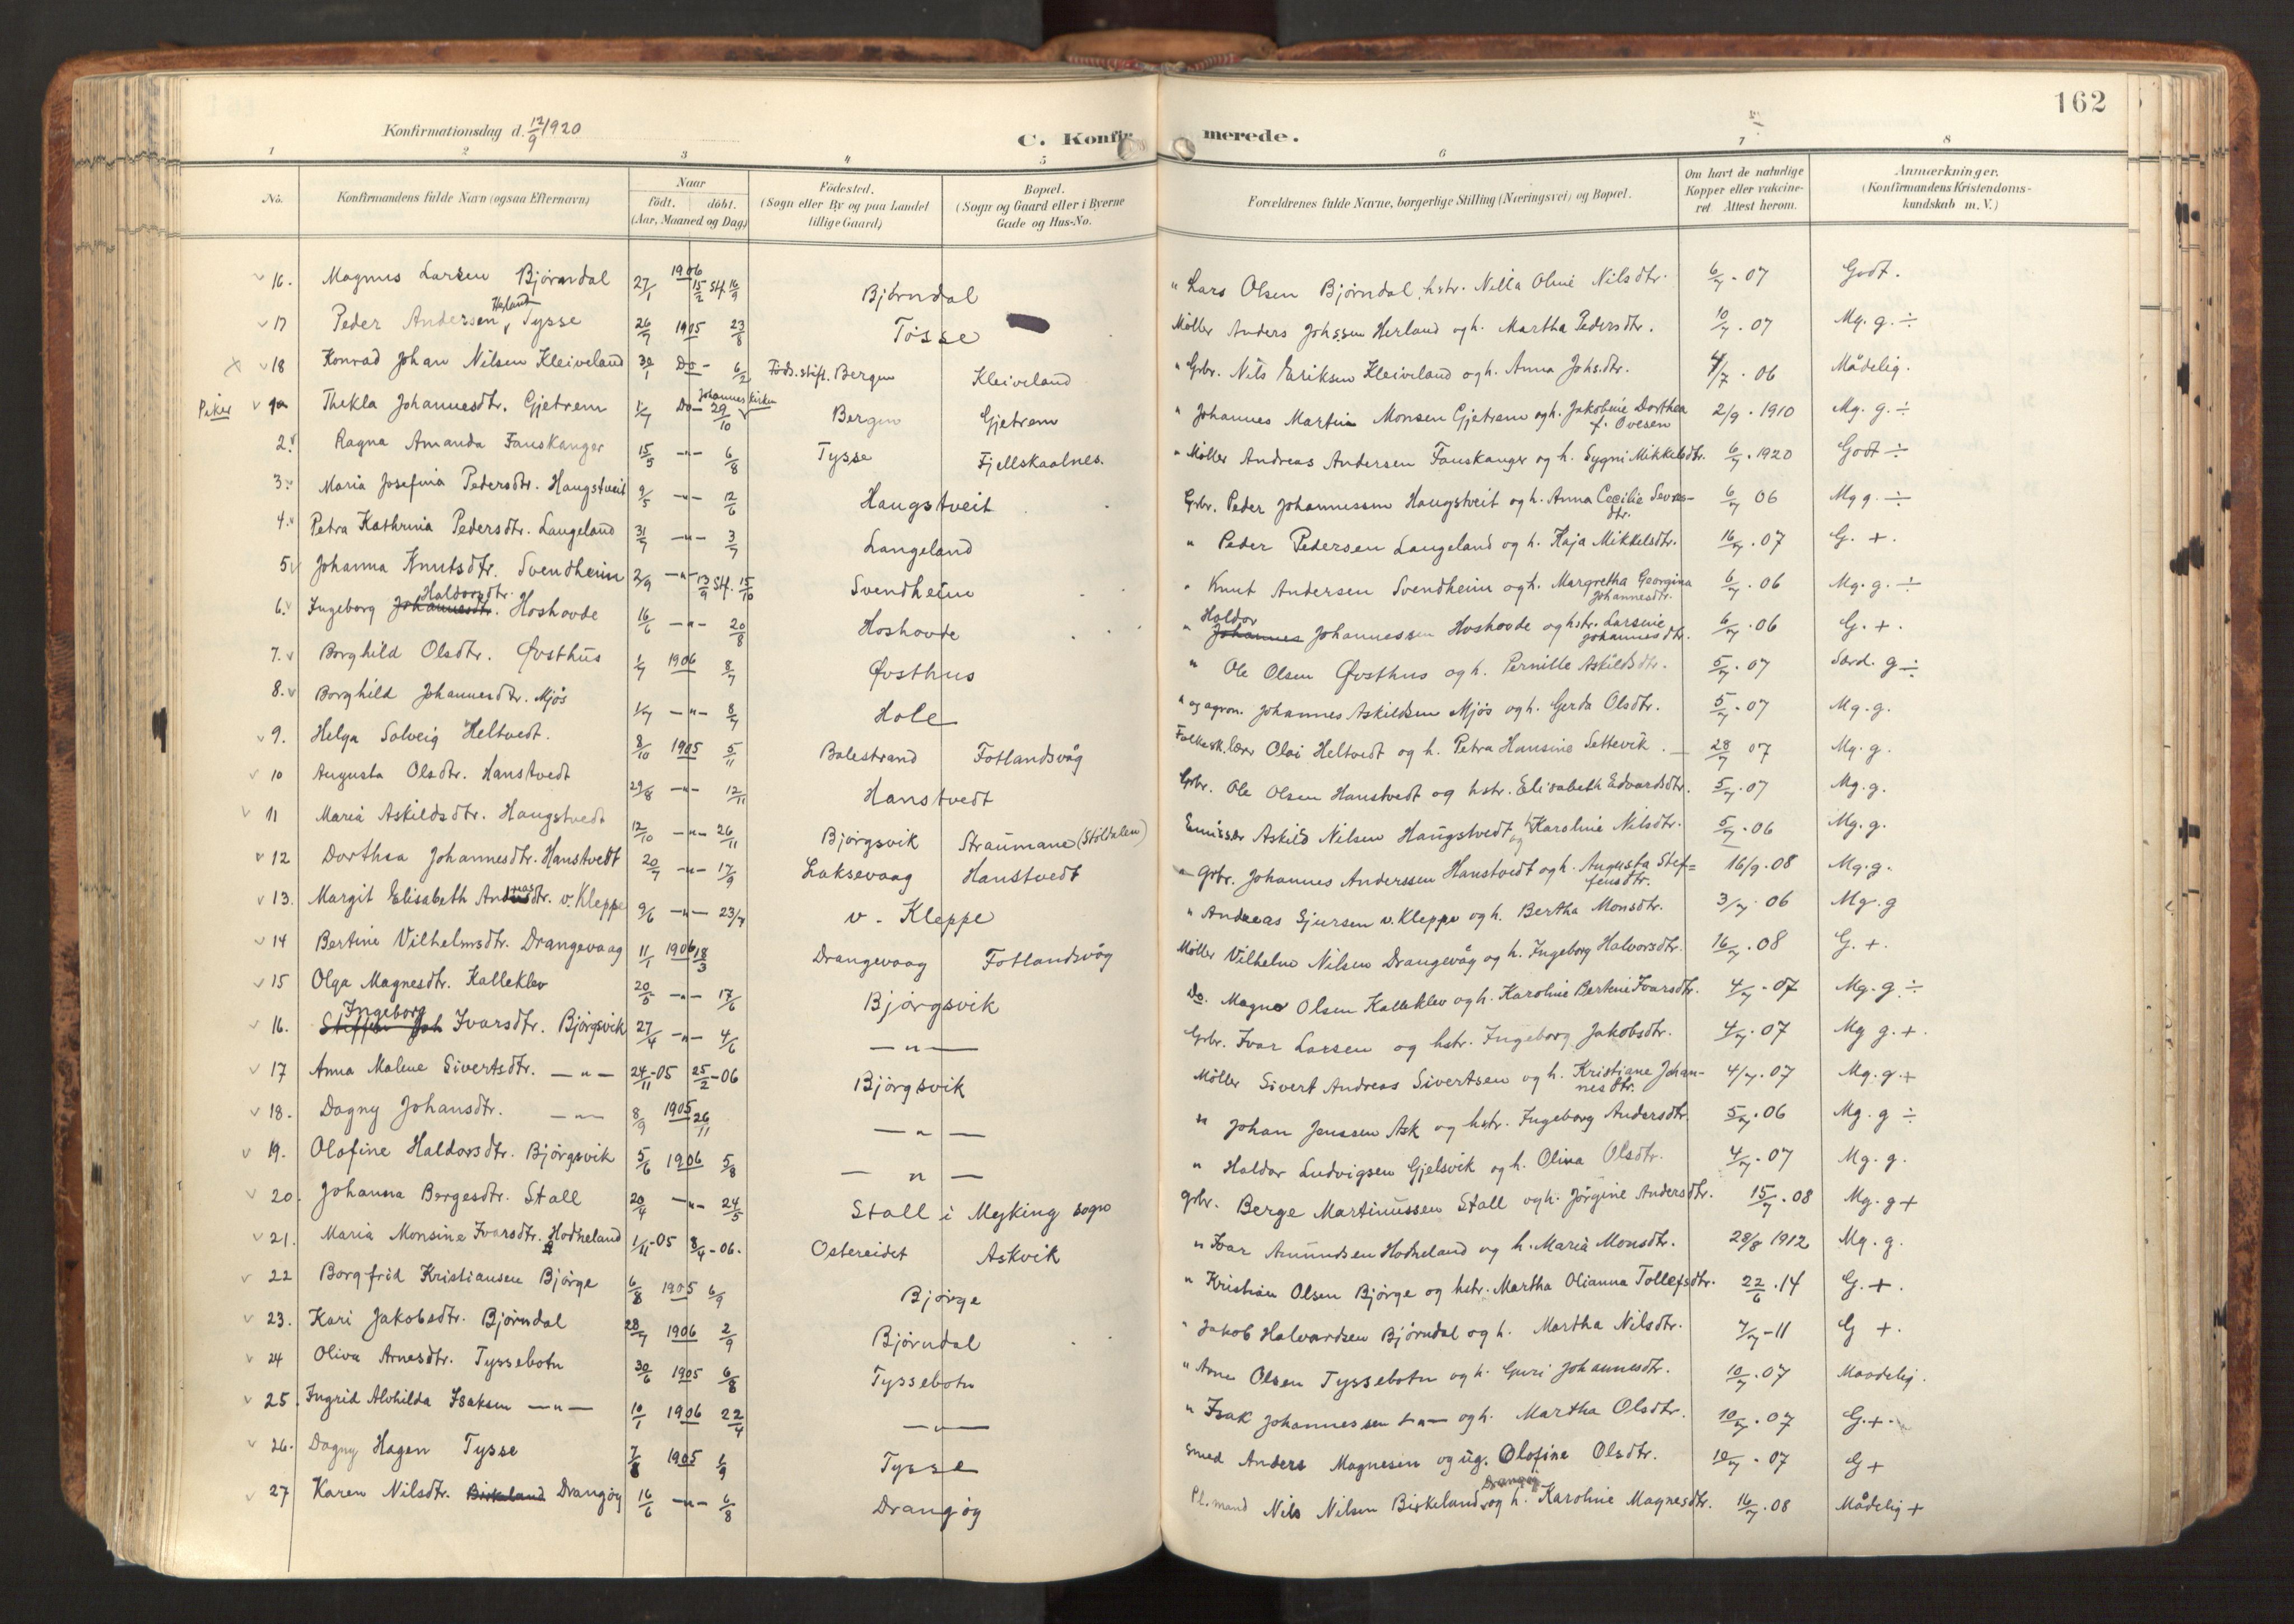 162
Konfirmationsdag d. 12/9 1920
C. Konfir merede.
1 2 3 4 5 6 7 8
No.
Konfirmandens fulde Navn (ogsaa Efternavn)
Naar
født. døbt.
(Aar, Maaned og Dag)
Fødested.
(Sogn eller By og paa Landet
tillige Gaard)
Bopæl.
(Sogn og Gaard eller i Byerne
Gade og Hus-No.
Forældrenes fulde Navne, borgerlige Stilling (Næringsvei) og Bopæl.
Om havt de naturlige
Kopper eller vaccine-
ret Attest herom.
Anmærkninger.
(Konfirmandens Kristendoms-
kundskab m. V.)
16. Magnus Larsen Bjørndal 27/1 1906 15/2 Stf. 16/9 Bjørndal " Lars Olsen Bjørndal, hstr. Nilla Oline Nilsdtr. 6/7 . 07 Godt.
17 Peder Andersen Herland Tysse 26/7 1905 23/8 Tøsse Møller Anders Johssen Herland og h. Martha Pedersdtr. 10/7 . 07 Mg. g. ÷
18 Konrad Johan Nilsen Kleiveland 30/1 Do - 6/2 Føds.stift. Bergen Kleiveland " Grbr. Nils Eriksen Kleiveland og h. Anna Johsdtr. 4/7 . 06 Mådelig.
Piker 1 Thekla Johannesdtr. Gjetrem 1/7 Do - Johanneskirken 29/10 Bergen Gjetrem " Johannes Martin Monsen Gjetrem og h. Jakobine Dorthea f. Ovesen 2/9 . 1910 Mg. g. ÷
2. Ragna Amanda Fauskanger 15/5 -"- 6/8 Tysse Fjellskaalnes. " Møller Andreas Andersen Fauskanger og h. Sygni Mikkelsdtr. 6/7 . 1920 Godt ÷
3. Maria Josefina Pedersdtr. Haugstveit 9/5 -"- 12/6 Haugstveit Grbr. Peder Johannessen Haugstveit og h. Anna Cecilie dtr. 6/7 06 Mg g. ÷
4. Petra Kathrina Pedersdtr. Langeland 31/7 -"- 3/7 Langeland " Peder Pedersen Langeland og h. Kaja Mikkelsdtr. 16/7 . 07 G. +.
5 Johanna Knutsdtr. Svendheim 2/9 -"- 13/9 Stf. 15/10 Svendheim " Knut Andersen Svendheim og h. Margretha Georgina Johannesdtr. 6/7 . 06 Mg. g. ÷
6. Ingeborg Johannesdtr. Haldorsdtr. Hoshovde 16/6 -"- 20/8 Hoshovde " Johannes Haldor Johannessen Hoshovde og hstr. Larsine Johannesdtr. 6/7 . 06 G. +.
7. Borghild Olsdtr. Øvsthus 1/7 1906 8/7 Øvsthus " Ole Olsen Øvsthus og h. Pernille Askildsdtr. 5/7 . 07 Særd. g ÷
8. Borghild Johannesdtr. Mjøs 1/7 -"- 8/7 Hole " og agron. Johannes Askildsen Mjøs og h. Gerda Olsdtr. 5/7 . 07 Mg. g.
9. Helga Solveig Heltvedt. 8/10 1905 5/11 Balestrand Fotlandsvåg Folkesk.lærer Olai Heltvedt og h. Petra Hansine Settevik. 28/7 07 Mg. g.
10 Augusta Olsdtr. Hanstvedt 29/8 -"- 12/11 Hanstvedt Grbr. Ole Olsen Hanstvedt og hstr. Elisabeth Edvardsdtr. 5/7 . 07 Mg. g.
11 Maria Askildsdtr. Haugstvedt 12/10 -"- 26/11 Bjørgsvik Straumane (Støldalen) Emissær Askild Nilsen Haugstvedt og h. Karoline Nilsdtr. 5/7 . 06 Mg. g.
12 Dorthea Johannesdtr. Hanstvedt 20/7 -"- 17/9 Laksevaag Hanstvedt " Grbr. Johannes Anderssen Hanstvedt og h. Augusta Stef= fensdtr. 16/9 . 08 Mg. g.
13. Margit Elisabeth Andreasdtr. v. Kleppe 9/6 -"- 23/7 v. Kleppe " Andreas Sjursen v. Kleppe og h. Bertha Monsdtr. 3/7 . 06 Mg. g
14 Bertine Vilhelmsdtr. Drangevaag 11/1 1906 18/3 Drangevaag Fotlandsvåg Møller Vilhelm Nilsen Drangevåg og h. Ingeborg Halvorsdtr. 16/7 . 08 G. +.
15 Olga Magnesdtr. Kalleklev 20/5 -"- 17/6 Bjørgsvik Do. Magne Olsen Kalleklev og h. Karoline Bertine Ivarsdtr. 4/7 . 07 Mg. g ÷
16. Steffen Joh Ingeborg Ivarsdtr. Bjørgsvik 27/4 -"- 4/6 -"- Grbr. Ivar Larsen og hstr. Ingeborg Jakobsdtr. 4/7 . 07 Mg g. +.
17 Anna Malene Sivertsdtr. -"- 24/11-05 25/2-06 Bjørgsvik Møller Sivert Andreas Sivertsen og h. Kristiane Johan- nesdtr. 4/7 . 07 Mg. g +
18. Dagny Johansdtr. -"- 8/9 1905 26/11 -"- " Johan Jenssen Ask og hstr. Ingeborg Andersdtr. 5/7 . 06 Mg. g ÷
19. Olofine Haldorsdtr. Bjørgsvik 5/6 1906 5/8 -"- " Haldor Ludvigsen Gjelsvik og h. Olina Olsdtr. 4/7 . 07 Mg. g.
20. Johanna Bergesdtr. Stall 20/4 -"- 24/5 Stall i Myking sogn Grbr. Berge Martinussen Stall og h. Jørgine Andersdtr. 15/7 . 08 Mg. g +
21. Maria Monsine Ivarsdtr. Hodneland 1/11-05 8/4-06. Ostereidet Askvik " Ivar Amundsen Hodneland og h. Maria Monsdtr. 28/8 1912 Mg. g.
22 Borgfrid Kristiansen Bjørge 6/8 1905 6/9 Bjørge " Kristian Olsen Bjørge og hstr. Martha Olianna Tollefsdtr. 22/6 . 14 G. +.
23. Kari Jakobsdtr. Bjørndal 28/7 1906 2/9 Bjørndal " Jakob Halvardsen Bjørndal og h. Martha Nilsdtr. 7/7 - 11 G +.
24 Oliva Arnesdtr. Tyssebotn 30/6 1905 6/8 Tyssebotn " Arne Olsen Tyssebotn og h. Guri Johannesdtr. 10/7 . 07 Maadelig.
25. Ingrid Alvhilda Isaksen -"- 10/1 1906 22/4 -"- " Isak Johannessen -"- og h. Martha Olsdtr. 10/7 . 07 G. +.
26. Dagny Hagen Tysse 7/8 1905 1/9 Tysse Smed Anders Magnesen og ug. Olofine Olsdtr. 10/7 . 07 G +
27 Karen Nilsdtr. Birkeland Drangøy 16/6 -"- 6/8 Drangøy Pl.mand Nils Nilsen Birkeland Drangøy og h. Karoline Magnesdtr. 16/7 . 08 Mådelig +